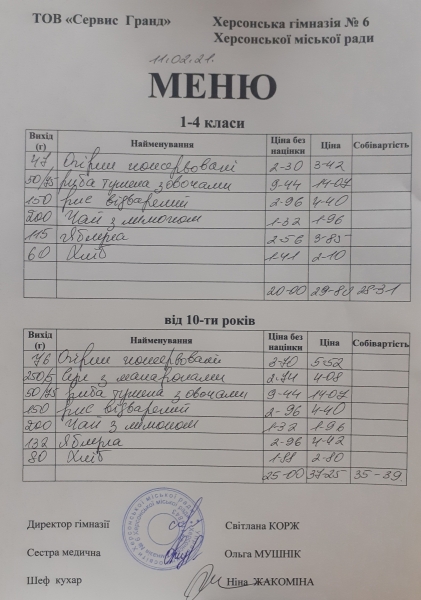 ТОВ «Сервис Гранд» Херсонська гімназія № 6
Херсонської міської ради
11.02.21.
МЕНЮ
1-4 класи
Вихід (г) Найменування Ціна без націнки Ціна Собівартість
47 Огірки консервовані 2-30 3-42
50/75 риба тушена з овочами 9-44 14-07
150 рис відварений 2-96 4-40
200 Чай з лимоном 1-32 1-96
115 Яблука 2-56 3-85
60 Хліб 1-41 2-10
20-00 29-80 28-31
від 10-ти років
Вихід (г) Найменування Ціна без націнки Ціна Собівартість
76 Огірки консервовані 3-70 5-52
250/5 Суп з макаронами 2-74 4-08
50/75 риба тушена з овочами 9-44 14-07
150 рис відварений 2-96 4-40
200 Чай з лимоном 1-32 1-96
132 Яблука 2-96 4-42
80 Хліб 1-88 2-80
25-00 37-25 35-39
Директор гімназії Світлана КОРЖ
Сестра медична Ольга МУШНІК
Шеф кухар Ніна ЖАКОМІНА